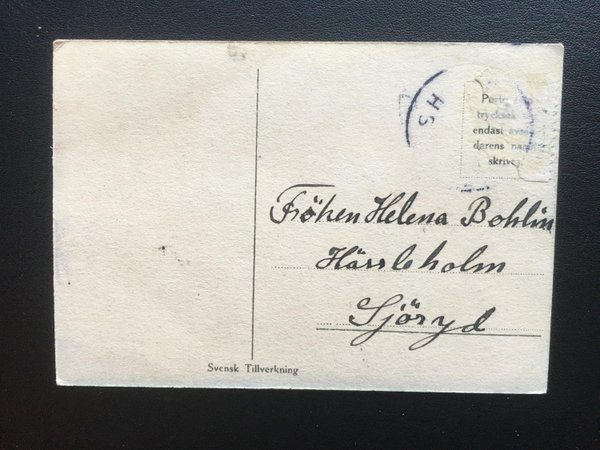 HS
tryckes
endast
darens
skrives
Fröken Helena Bohlin
Härsleholm
Sjöryd
Svensk Tillverkning